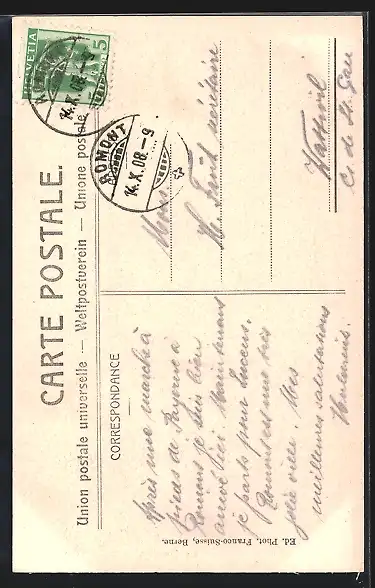 HELVETIA
5
ROMONT
14.X.08.-9
ROMONT
14.X.08.-9
CARTE POSTALE.
Union postale universelle — Weltpostverein — Unione postale
CORRESPONDANCE
Après une marche à
pieds de Payerne à
Romont je suis bien
arrivé ici. Maintenant
je parts pour Lucens.
Romont est une très
jolie ville. Mes
meilleures salutations
Monsieur
H. secrétaire
Wattwil
Ct. de St. Gall
Ed. Phot. Franco-Suisse, Berne.